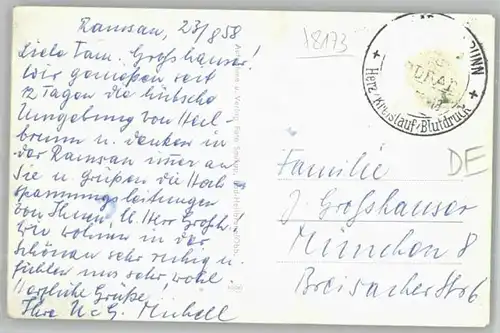 Ramsau, 23/8 58
Liebe Fam. Großhauser!
Wir genießen seit
12 Tagen die hübsche
Umgebung von Heil-
brunn u. denken in
der Ramsau immer an
Sie u. grüßen die Hoch
spannungsleitungen
von Ihnen, u. Herr Großh.!
Wir wohnen in der
Schönau sehr ruhig u.
fühlen uns sehr wohl
Herzliche Grüße,
Ihre U. G. Michell
18173
BRUNN
Herz/Kreislauf/Blutdruck
DE
Familie
J. Großhauser
München 8
Breisacherstr 6